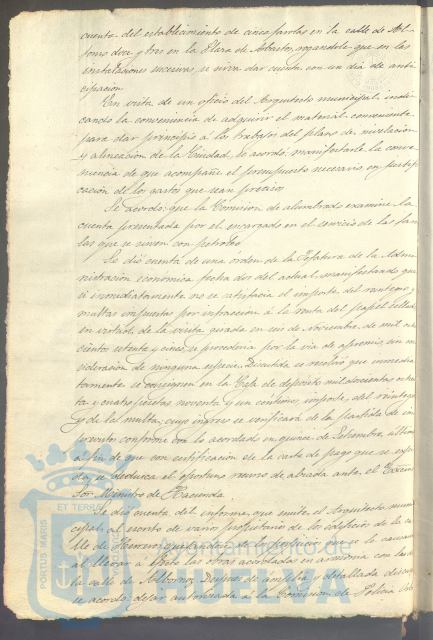 cuenta del establecimiento de cinco farolas en la calle de Al-
fonso doce y tres en la Plaza de Abastos, rogandole que en las
instalaciones sucesivas, se sirva dar cuenta con un dia de anti-
cipacion.
En vista de un oficio del Arquitecto municipal indi-
cando la conveniencia de adquirir el material conveniente
para dar principio a los trabajos del plano de nivelacion
y alineacion de la Ciudad, se acordó, manifestarle la conve-
niencia de que acompañe el presupuesto necesario en justifi-
cacion de los gastos que sean precisos
Se acordó: que la Comision de alumbrado examine la
cuenta presentada por el encargado en el servicio de las faro-
las que se sirven con petroleo
Se dió cuenta de una orden de la Jefatura de la Admi-
nistracion economica fecha dos del actual manifestando que
si inmediatamente no se satisfacia el importe del reintegro y
multas impuestas por infraccion á la renta del papel sellado
en virtud de la visita girada en seis de Noviembre de mil ocho-
cientos setenta y cinco, se procederia por la via de apremio sin con
sideracion de ninguna especie. Discutida se resolvió que inmedia-
tamente se consignen en la Caja de deposito mil doscientas ochen-
ta y cuatro pesetas noventa y un centimos, importe del reintegro
y de la multa; cuyo ingreso se verificará de la partida de im-
previstos conforme con lo acordado en quince de Setiembre ultimo
a fin de que con certificacion de la carta de pago que se expi-
da, se deduzca el oportuno recurso de alzada ante el Excmo
Sor. Ministro de Hacienda.
Se dió cuenta del informe, que emite el Arquitecto muni-
cipal al escrito de varios propietarios de los edificios de la ca-
lle de Herrero, quejandose de los perjuicios que se le causaran
al llevar á efecto las obras acordadas en armonia con las de
la calle de Albornoz. Despues de amplia y detallada discusion
se acordó: dejar autorizada á la Comision de Policia
PORTUS MARIS
ET TERRE
Ayuntamiento de
HUELVA